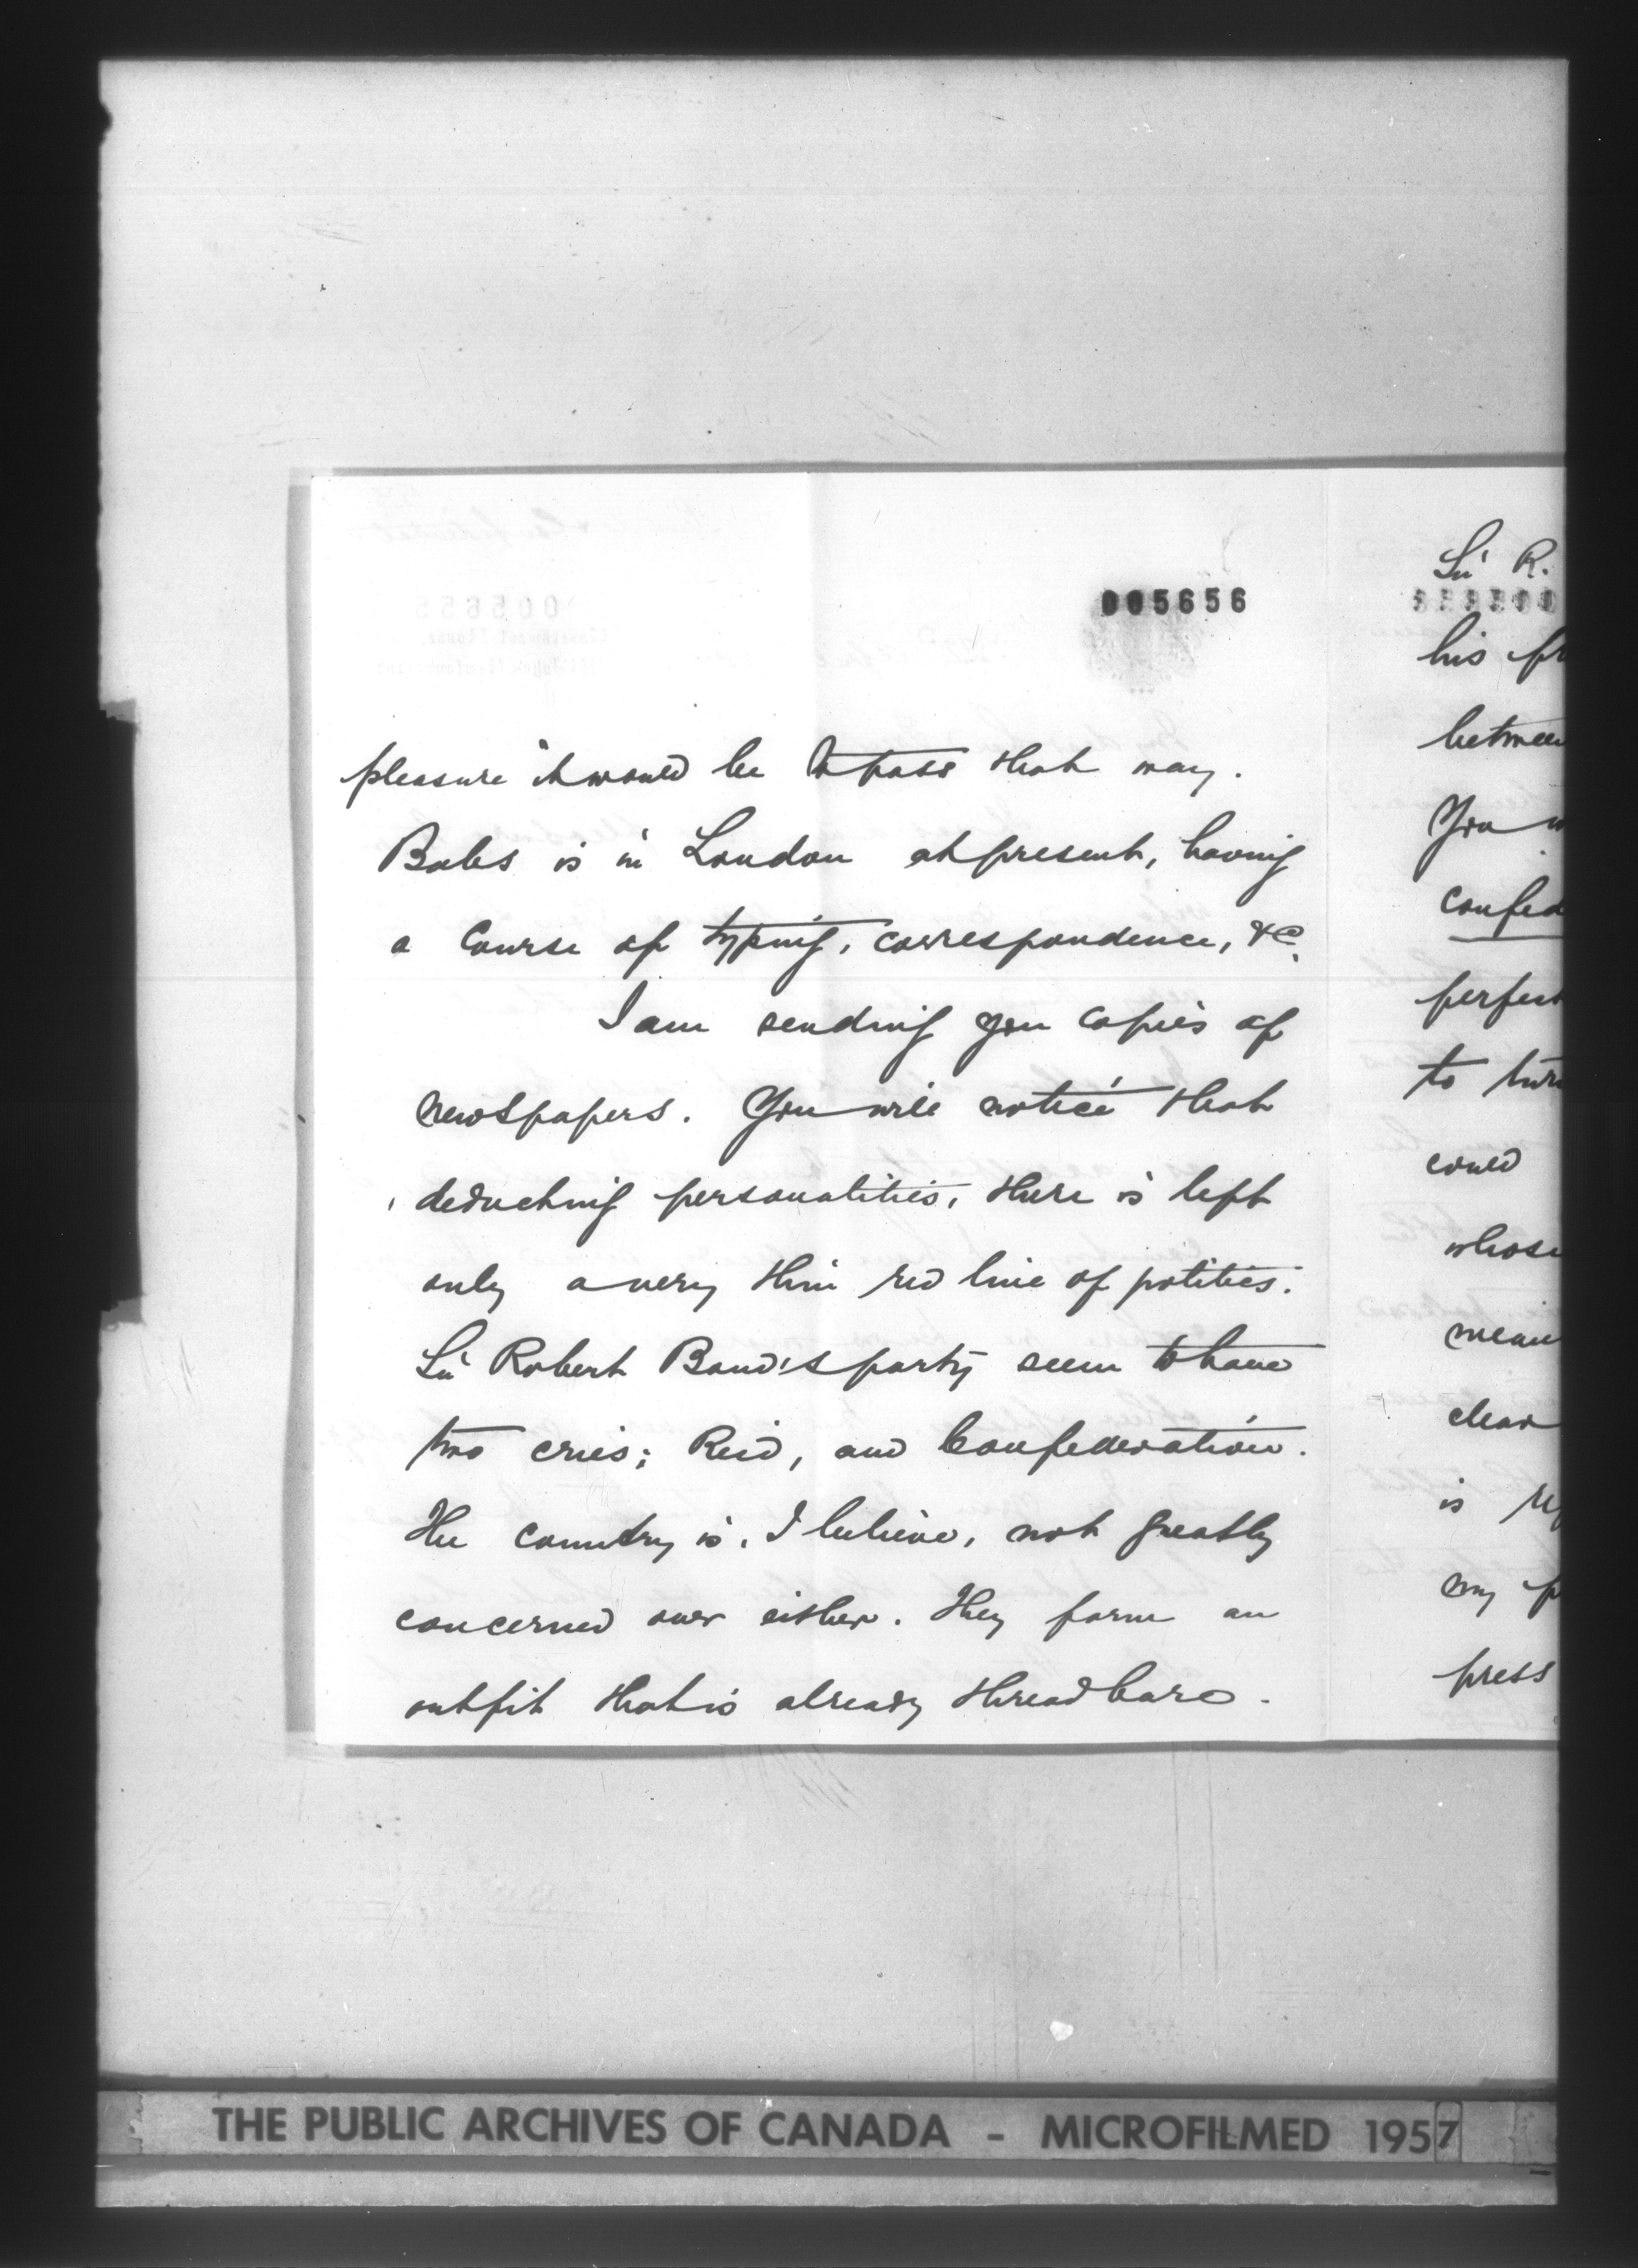 005656
pleasure it would be to pass that way.
Babs is in London at present, having
a Course of typing, correspondence, &c.
I am sending you copies of
newspapers. You will notice that
deducting personalities, there is left
only a very thin red line of politics.
Sir Robert Bond's party seem to have
two cries; Reid, and Confederation.
The country is, I believe, not greatly
concerned over either. They form an
outfit that is already threadbare.
Sir R.
his
between
You
confed
perfect
to turn
could
whose
mean
clear
is
my
press
THE PUBLIC ARCHIVES OF CANADA - MICROFILMED 1957